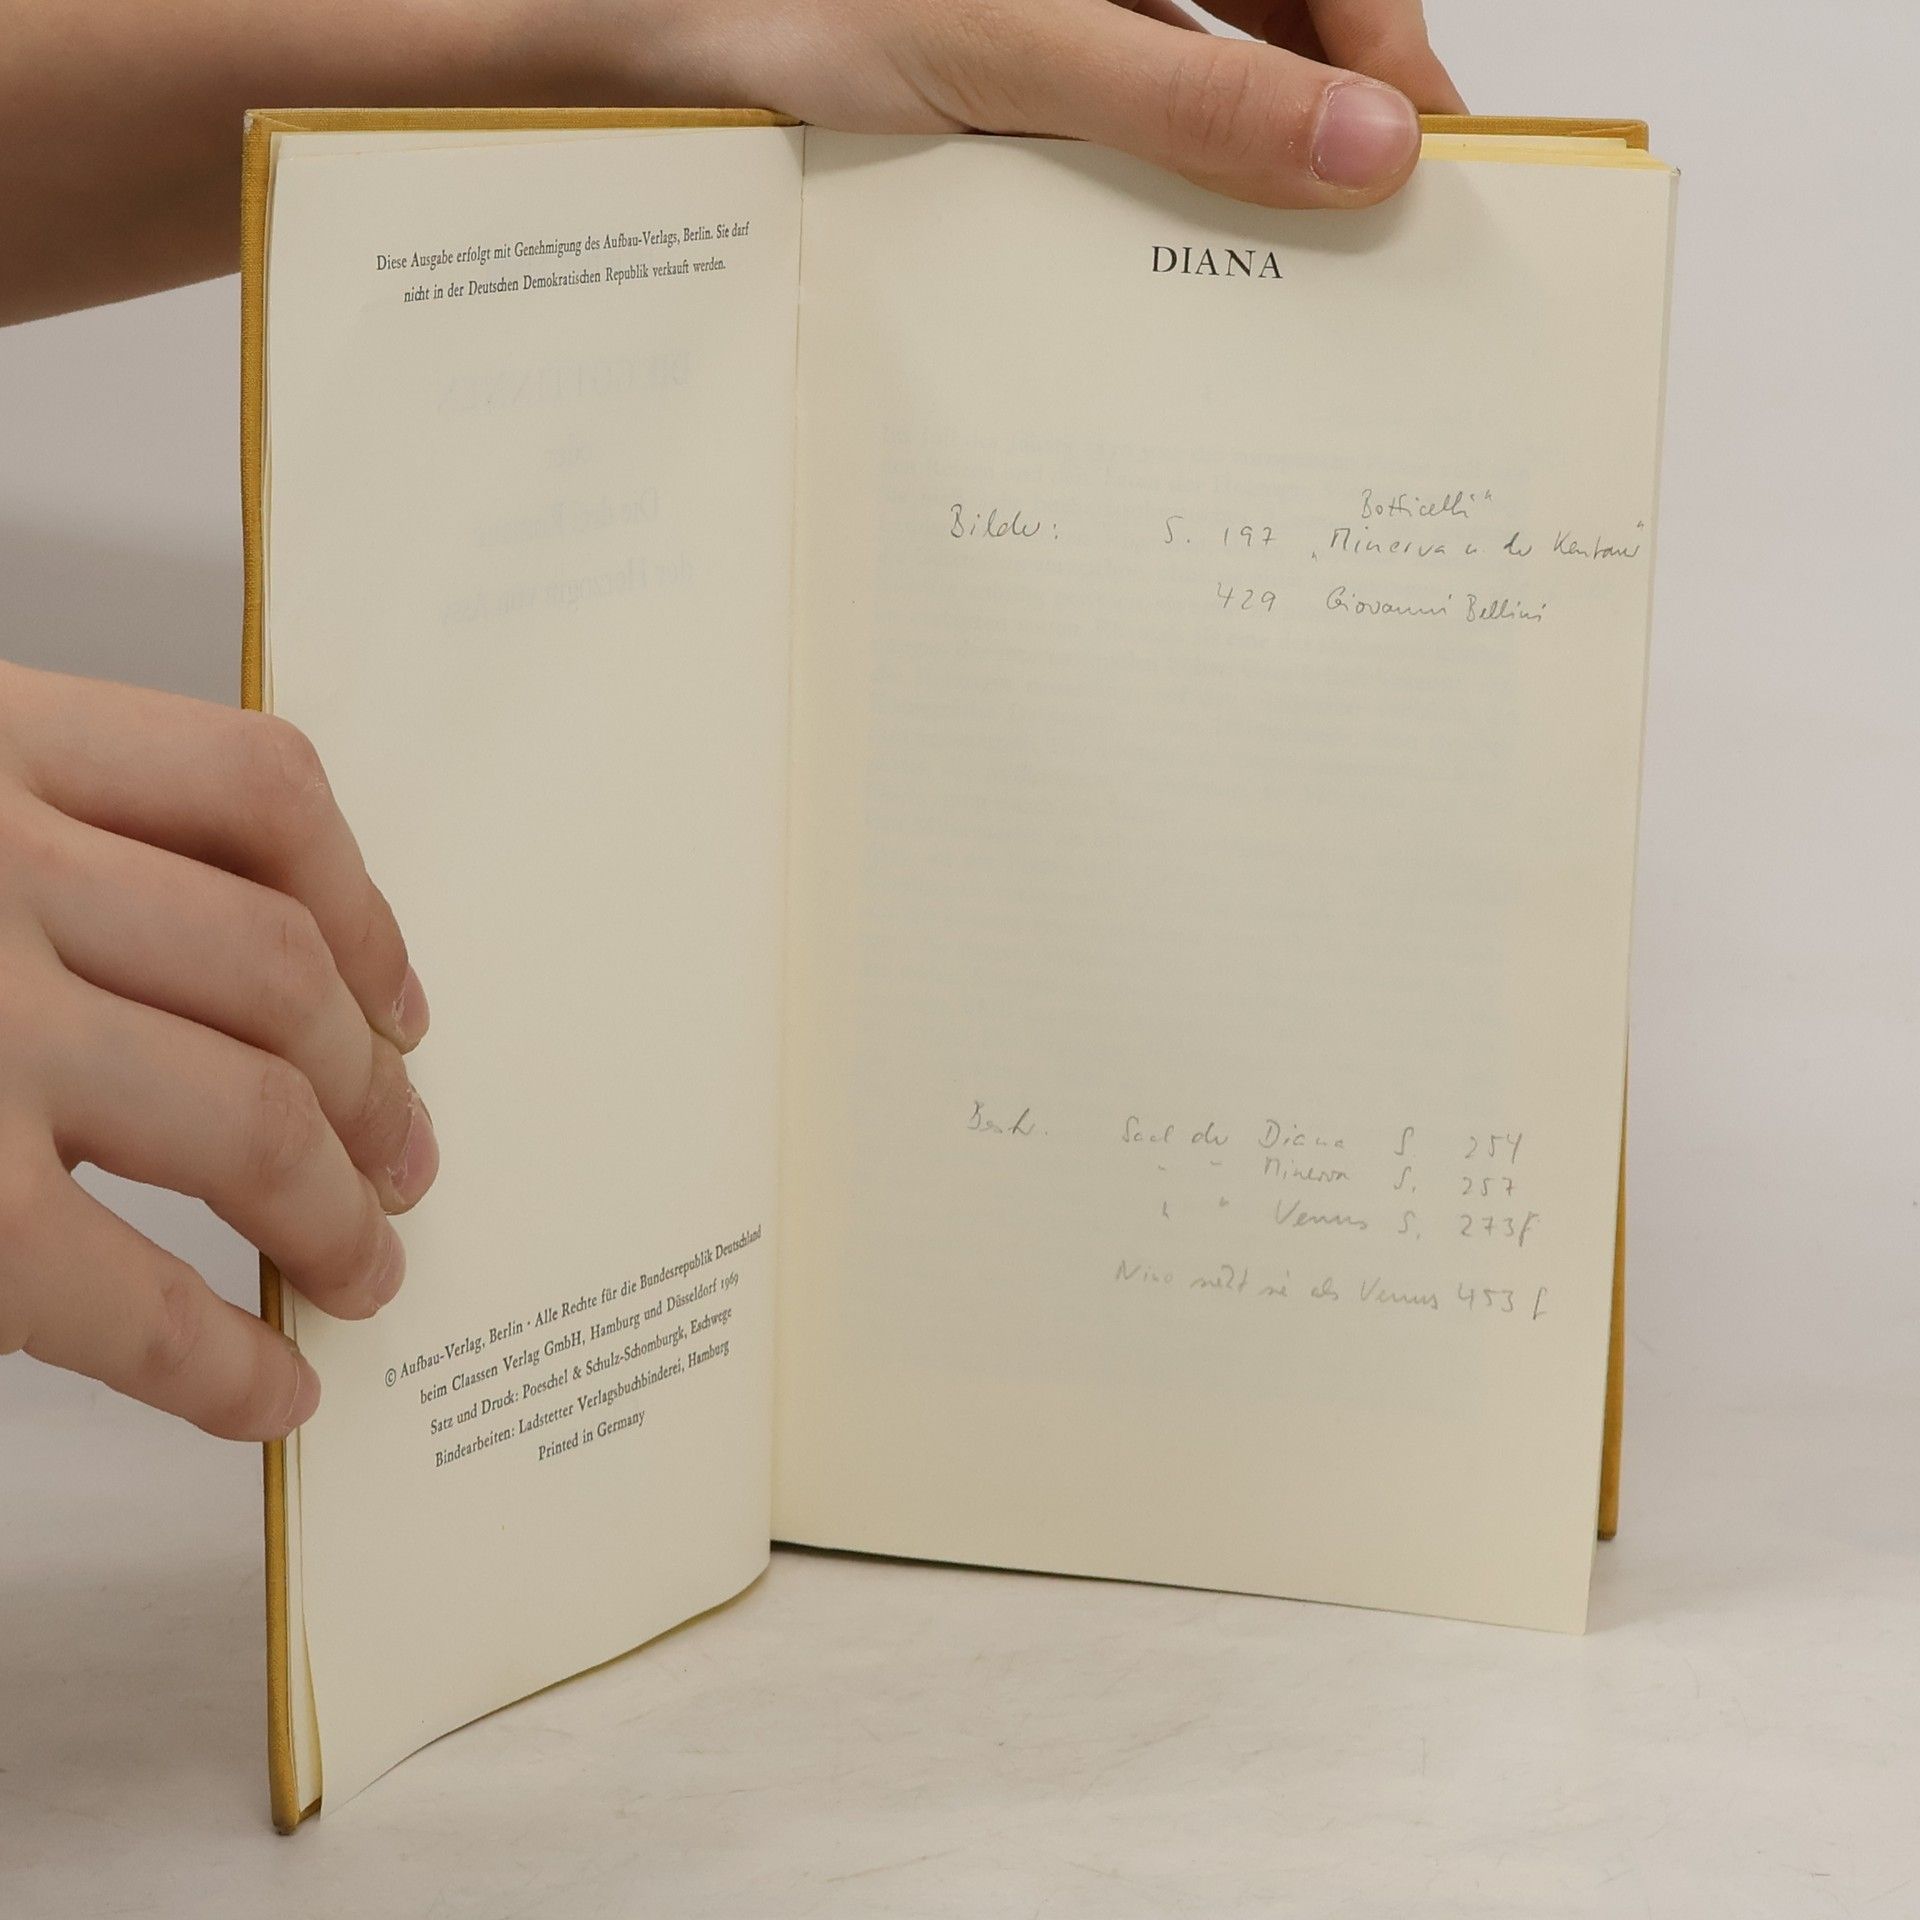 Diese Ausgabe erfolgt mit Genehmigung des Aufbau-Verlags, Berlin. Sie darf
nicht in der Deutschen Demokratischen Republik verkauft werden.
© Aufbau-Verlag, Berlin · Alle Rechte für die Bundesrepublik Deutschland
beim Claassen Verlag GmbH, Hamburg und Düsseldorf 1969
Satz und Druck: Poeschel & Schulz-Schomburgk, Eschwege
Bindearbeiten: Ladstetter Verlagsbuchbinderei, Hamburg
Printed in Germany
DIANA
Botticelli"
Bilder: S. 197 „Minerva u. der Kentaur"
429 Giovanni Bellini
Saal der Diana S. 254
" " Minerva S. 257
" " Venus S. 273f
Nino sieht sie als Venus 453 f